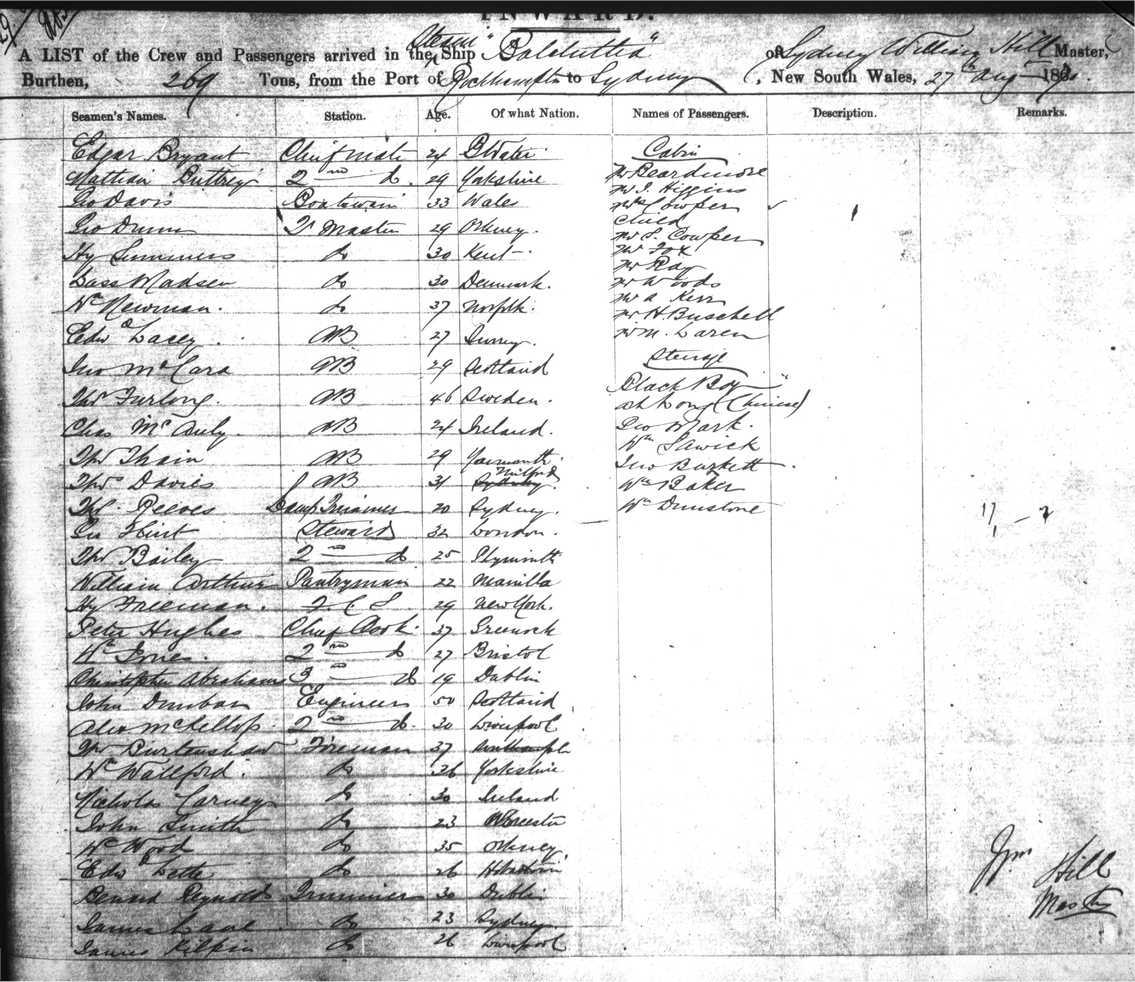 INWARD.
A LIST of the Crew and Passengers arrived in the Steam Ship "Balclutha" of Sydney William Hill Master,
Burthen, 269 Tons, from the Port of Rockhampton to Sydney, New South Wales, 27th Aug 187
Seamen's Names. Station. Age. Of what Nation. Names of Passengers. Description. Remarks.
Edgar Bryant Chief mate 24 BWater Cabin
2nd do. 29 Yorkshire Mr Beardmore
Geo Davis Boatswain 33 Wales Mr J. Higgins
Mrs Cowper
Geo Dunn Qr Master 29 Orkney. Child
Mr S. Cowper
Hy Summers do 30 Kent Mr Fox
Mr Ray
Lass Madsen do 30 Denmark. Mr Woods
Wm Newman. do 37 Norfolk. Mr A Kerr
Mr H Buschell
Edwd Lacey AB 27 Surrey. Mr M. Laren
Jno McCara AB 29 Scotland Steerage
Thos Furlong. AB 46 Sweden. Black Boy
Ah Kong (Chinese)
Chas McAuly. AB 24 Ireland. Geo Mark.
Wm Sawick
Thos Thain AB 29 Yarmouth. Jno Burkett
Thos Davies AB 31 Milford Wm Baker
Thos Reeves Lamp Trimmer 20 Sydney. Wm Dunstone
Flint Steward 32 London.
Thos Bailey 2nd do 25 Plymouth
William Arthur Pantryman 22 Manilla
Hy Freeman. F. C. S 29 New York.
Peter Hughes Chief Cook. 37 Greenock
Wm Jones. 2nd do 27 Bristol
Christopher Abrahams 3 do 19 Dublin
John Dunbar Engineer 50 Scotland
Alex McKellop. 2nd do 30 Liverpool
Thos Burtenshaw Foreman 37
Wm Wallford. do 26 Yorkshire
Nicholas Carney do 30 Ireland
John Smith do 23 Worcester
Wm Wood do 35 Orkney
Edwd Lette do 26 Hobartown
Bernard Reynolds Trimmers 30 Dublin
James do 23 Sydney
James Kilpin do 26 Liverpool
Wm Hill
Master